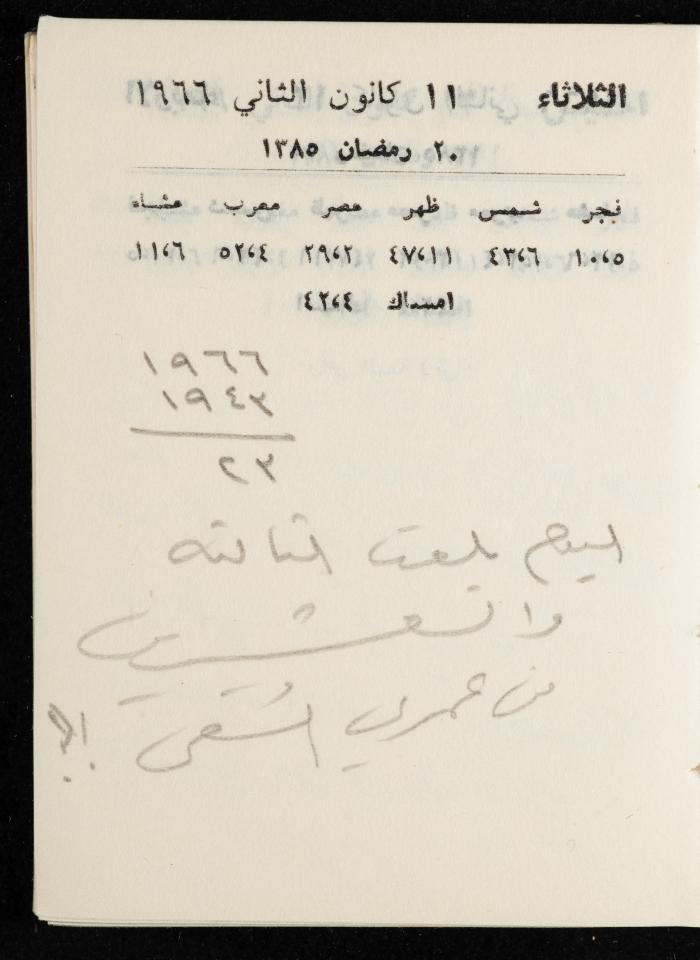 الثلاثاء ١١ كانون الثاني ١٩٦٦
٢٠ رمضان ١٣٨٥
فجر شمس ظهر عصر مغرب عشاء
١٠،٥ ٤٣،٦ ٤٧،١١ ٢٩،٢ ٥٢،٤ ١١،٦
امساك ٤٢،٤
١٩٦٦
١٩٤٣
٢٣
اليوم بلغت الثالثة
والعشرين
من عمري الشقي !!